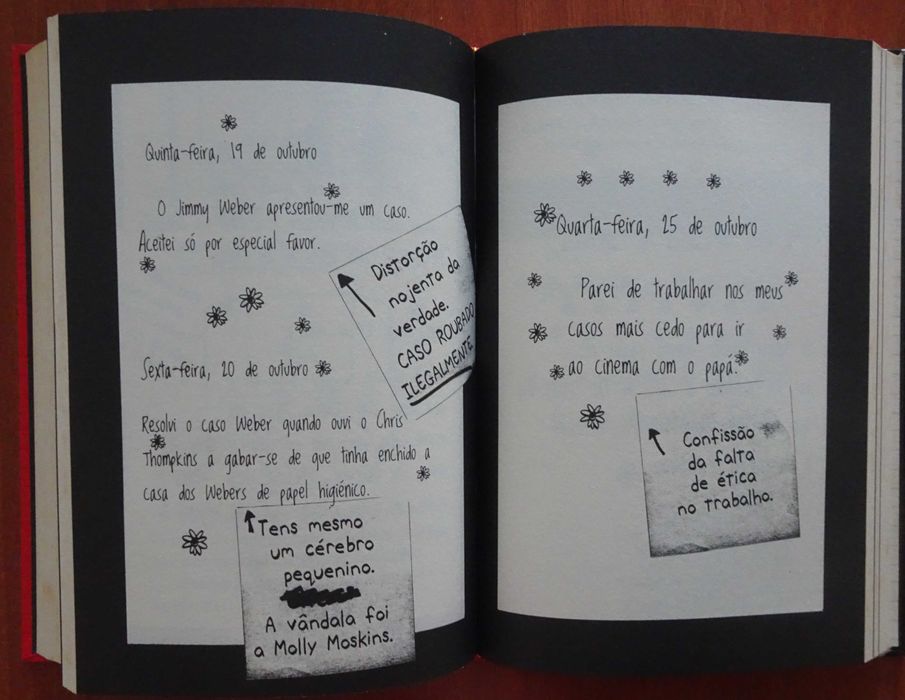 Quinta-feira, 19 de outubro
O Jimmy Weber apresentou-me um caso.
Aceitei só por especial favor.
Distorção
nojenta da
verdade.
CASO ROUBADO
ILEGALMENTE
Sexta-feira, 20 de outubro
Resolvi o caso Weber quando ouvi o Chris
Thompkins a gabar-se de que tinha enchido a
casa dos Webers de papel higiénico.
Tens mesmo
um cérebro
pequenino.
A vândala foi
a Molly Moskins.
Quarta-feira, 25 de outubro
Parei de trabalhar nos meus
casos mais cedo para ir
ao cinema com o papá.
Confissão
da falta
de ética
no trabalho.